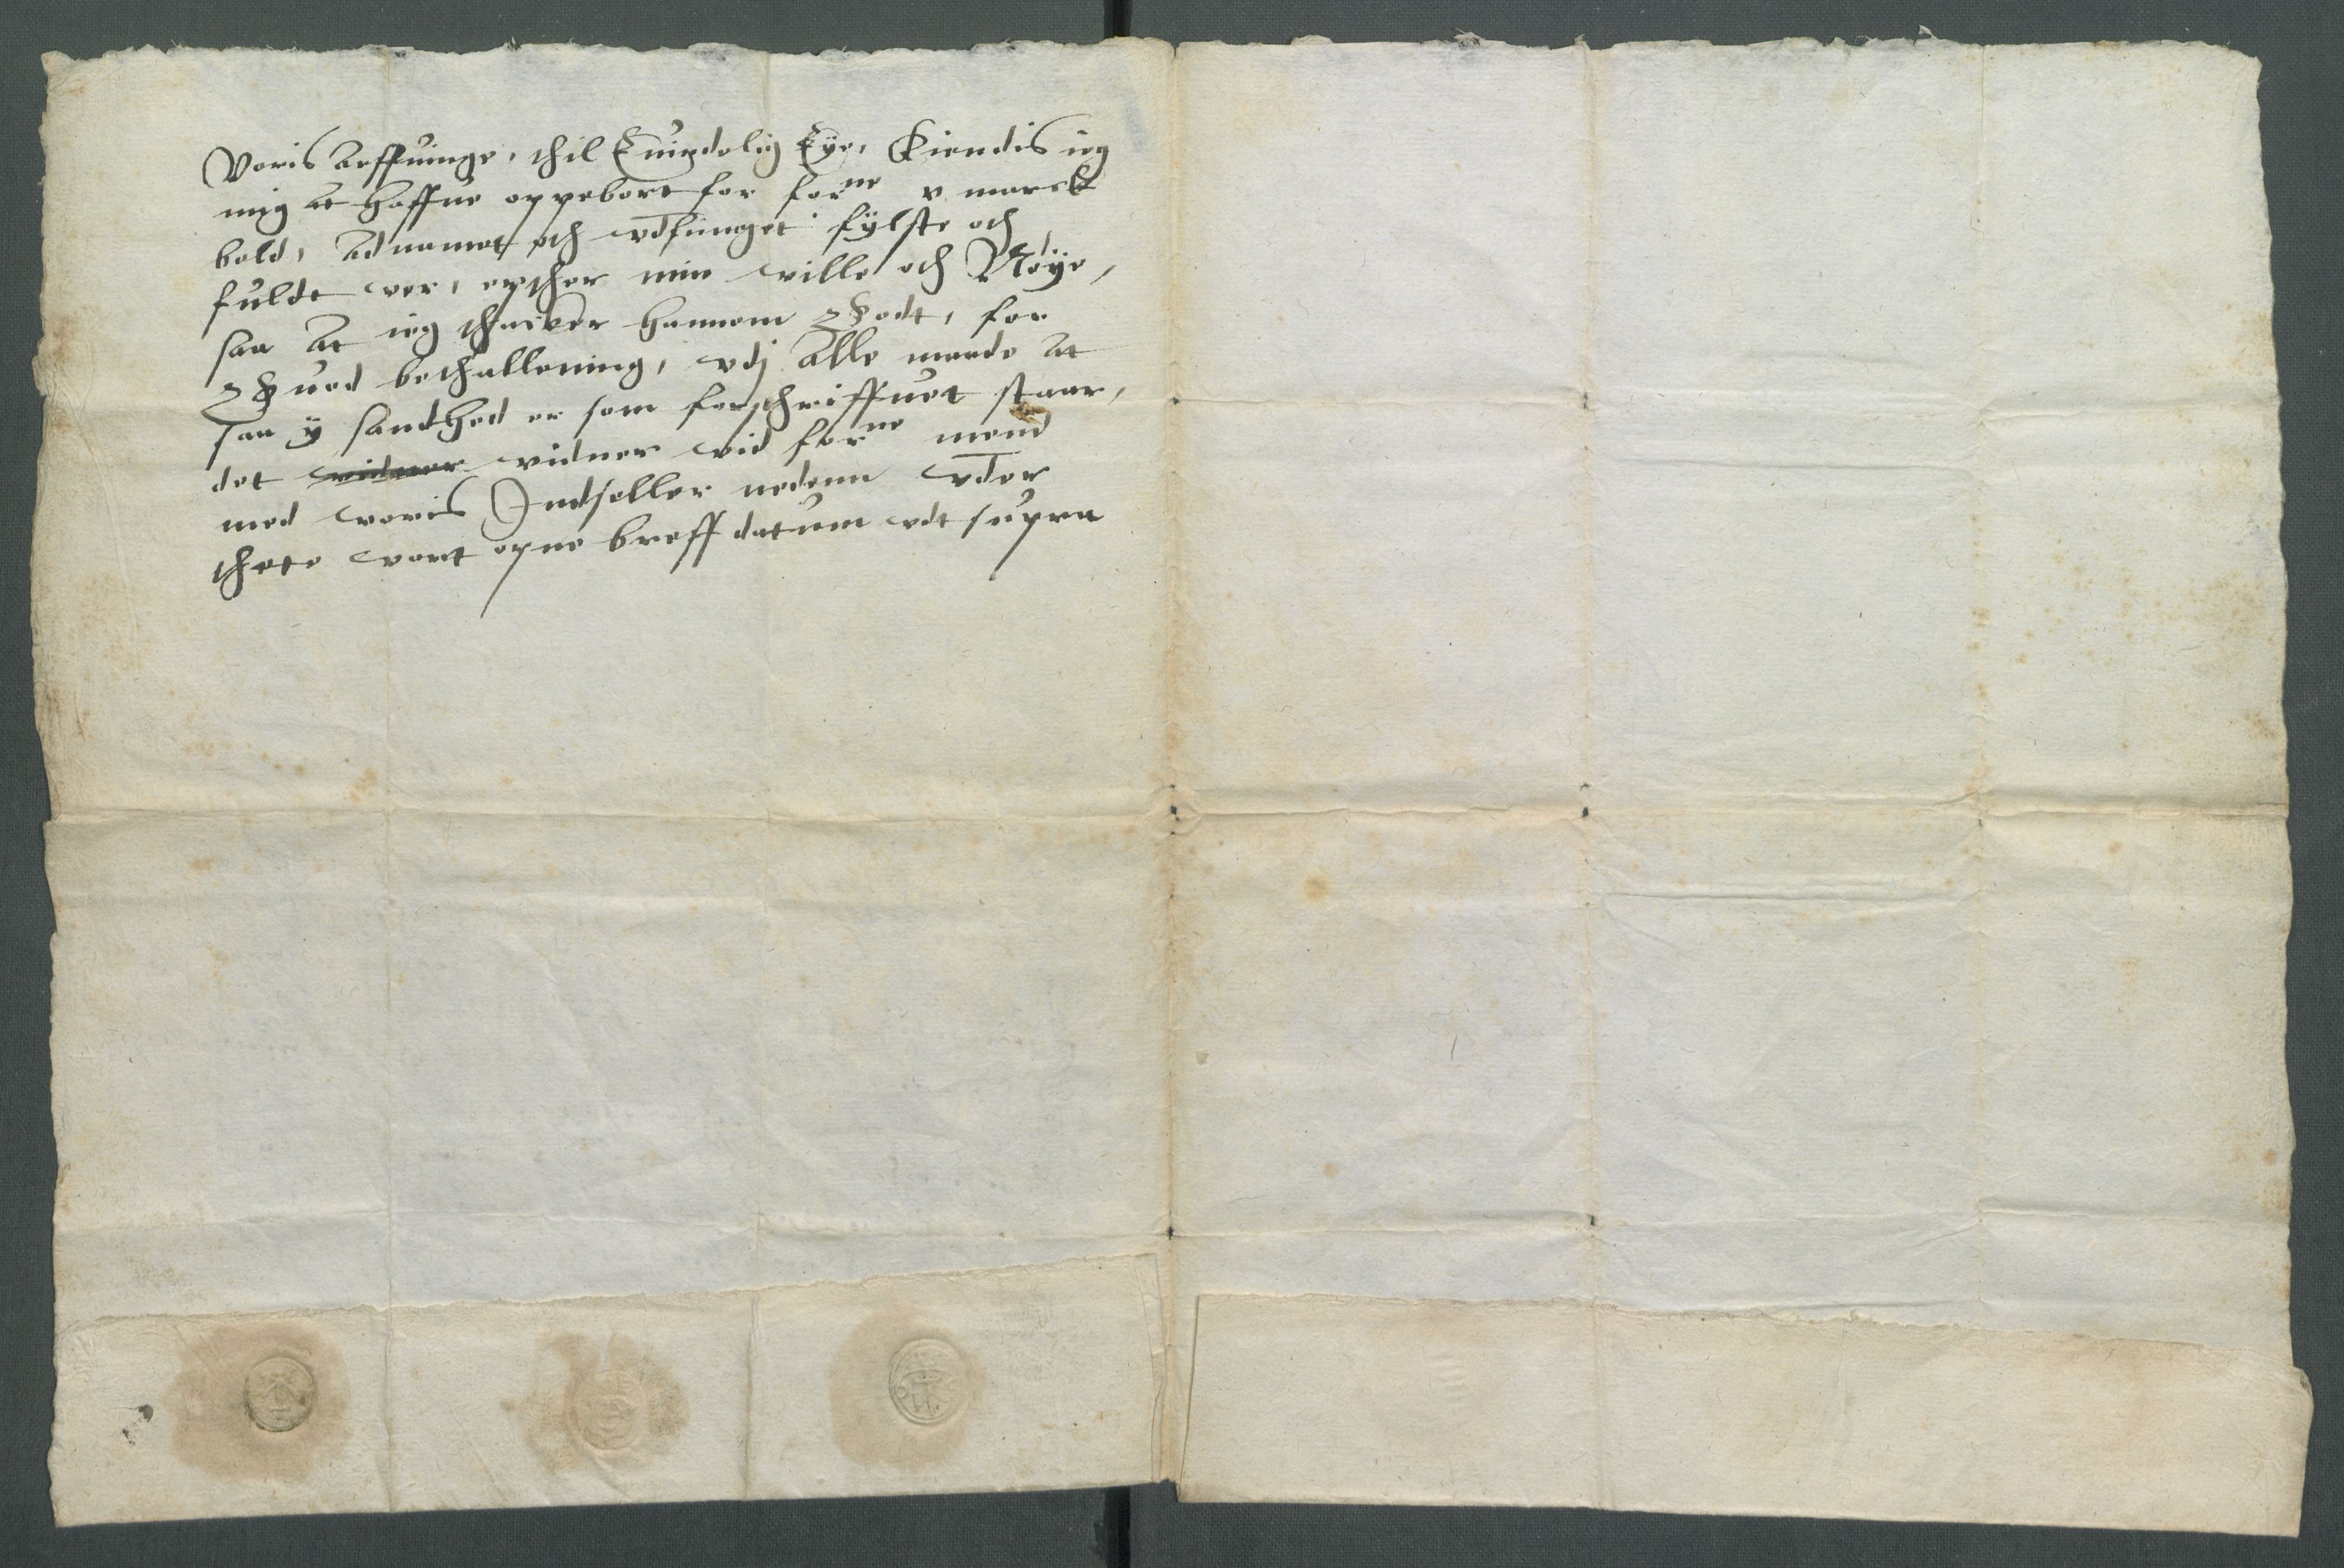 Voris arffuinge, thil Euindelig Eÿe, Kiendis ieg
mig at haffue oppebort for forne v marck
bold, Adnamet och vdfunget fÿlste och
fuldt ver, epther min ville och Nøÿe,
saa at ieg thacker hannem godt, for
gued bethallening, vdj alle maade at
saa ÿ sandhed er som forschriffuet staar,
det vidner vidner vid forne mend
med voris Indseller nedenn vder
thete vort opne breff datum vdt supra